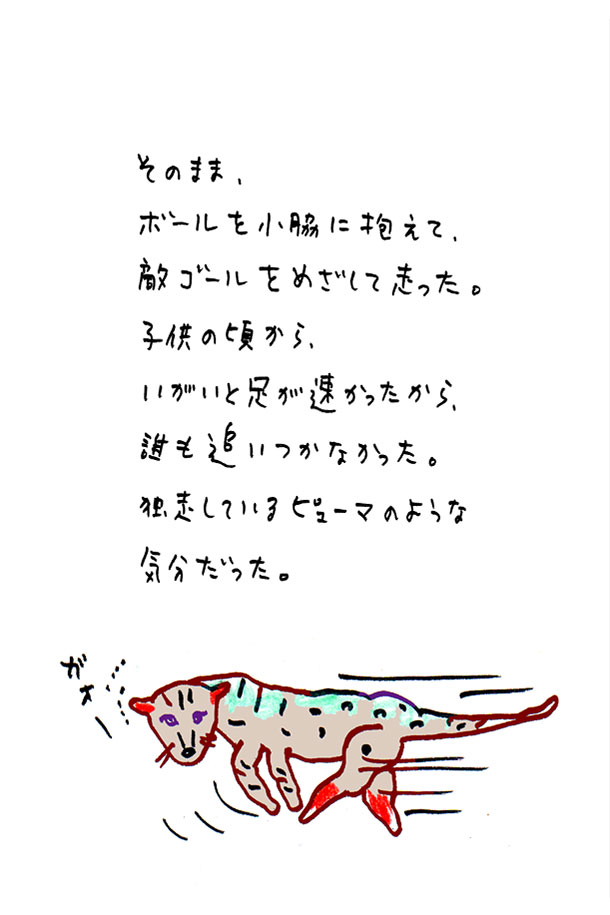 そのまま、
ボールを小脇に抱えて、
敵ゴールをめざして走った。
子供の頃から、
いがいと足が速かったから、
誰も追いつかなかった。
独走しているピューマのような
気分だった。
ガオー